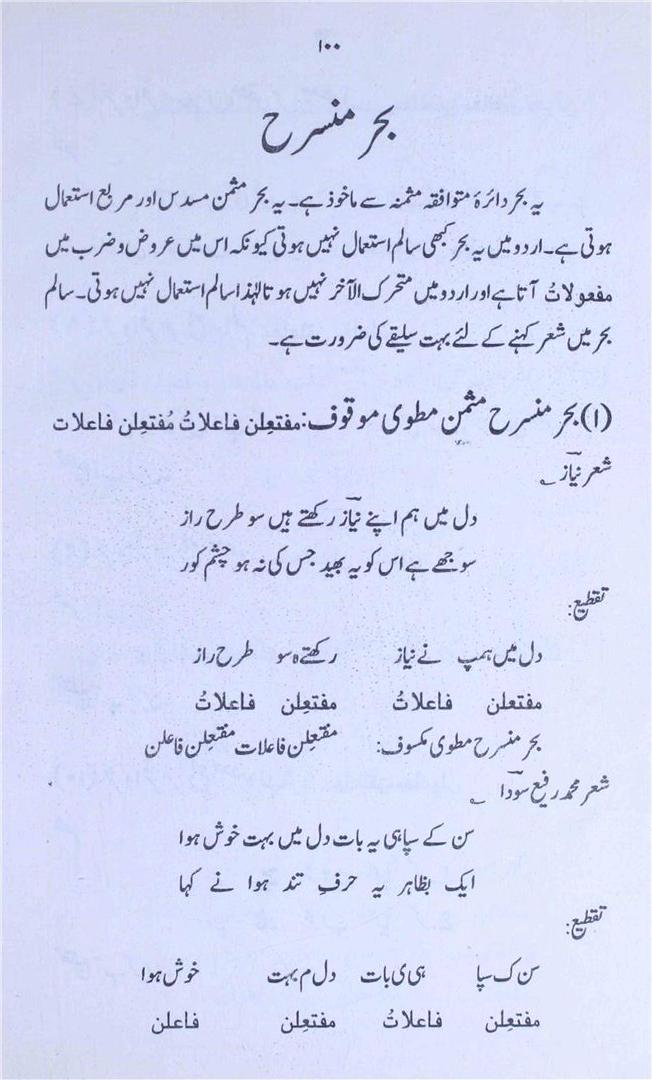 ۱۰۰
بحر منسرح
یہ بحر دائرۂ متوافقہ مثمنہ سے ماخوذ ہے۔ یہ بحر مثمن مسدس اور مربع استعمال
ہوتی ہے۔ اردو میں یہ بحر کبھی سالم استعمال نہیں ہوتی کیونکہ اس میں عروض و ضرب میں
مفعولاتُ آتا ہے اور اردو میں متحرک الآخر نہیں ہوتا لہٰذا سالم استعمال نہیں ہوتی۔ سالم
بحر میں شعر کہنے کے لئے بہت سلیقے کی ضرورت ہے۔
(۱) بحر منسرح مثمن مطوی موقوف: مفتعِلن فاعلاتُ مُفتعِلن فاعلات
شعر نیازؔ ؎
دل میں ہم اپنے نیازؔ رکھتے ہیں سو طرح راز
سوجھے ہے اس کو یہ بھید جس کی نہ ہو چشم کور
تقطیع:
دل میں ہمپ نے نیاز رکھتے ہ سو طرح راز
مفتعلن فاعلاتُ مفتعِلن فاعلاتُ
بحر منسرح مطوی مکسوف: مفتعِلن فاعلات مفتعِلن فاعلن
شعر محمد رفیع سوداؔ ؎
سن کے سپاہی یہ بات دل میں بہت خوش ہوا
ایک بظاہر یہ حرفِ تند ہوا نے کہا
تقطیع:
سن ک سپا ہی ی بات دل م بہت خوش ہوا
مفتعِلن فاعلاتُ مفتعِلن فاعلن